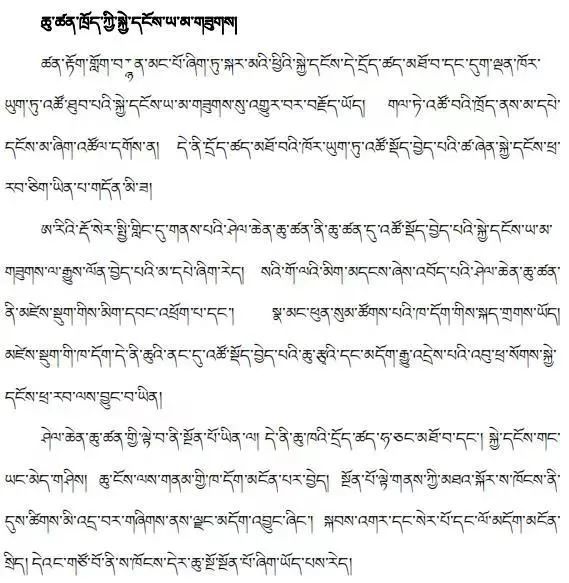 ཆུ་ཚན་ཁྲོད་ཀྱི་སྐྱེ་དངོས་ཡ་མ་གཟུགས།
ཚན་རྟོག་གློག་བརྙན་མང་པོ་ཞིག་ཏུ་སྐར་མའི་ཕྱིའི་སྐྱེ་དངོས་དེ་དྲོད་ཚད་མཐོ་བ་དང་དུག་ལྡན་ཁོར་
ཡུག་ཏུ་འཚོ་ཐུབ་པའི་སྐྱེ་དངོས་ཡ་མ་གཟུགས་སུ་འགྱུར་བར་བརྗོད་ཡོད། གལ་ཏེ་འཚོ་བའི་ཁྲོད་ནས་མ་དཔེ་
དངོས་མ་ཞིག་འཚོལ་དགོས་ན། དེ་ནི་དྲོད་ཚད་མཐོ་བའི་ཁོར་ཡུག་ཏུ་འཚོ་སྡོད་བྱེད་པའི་ཚ་ཞེན་སྐྱེ་དངོས་ཕྲ་
རབ་ཅིག་ཡིན་པ་གདོན་མི་ཟ།
ཨ་རིའི་རྡོ་སེར་སྤྱི་གླིང་དུ་གནས་པའི་ཤེལ་ཆེན་ཆུ་ཚན་ནི་ཆུ་ཚན་དུ་འཚོ་སྡོད་བྱེད་པའི་སྐྱེ་དངོས་ཡ་མ་
གཟུགས་ལ་རྒྱུས་ལོན་བྱེད་པའི་མ་དཔེ་ཞིག་རེད། སའི་གོ་ལའི་མིག་མདངས་ཞེས་འབོད་པའི་ཤེལ་ཆེན་ཆུ་ཚན་
ནི་མཛེས་སྡུག་གིས་མིག་དབང་འཕྲོག་པ་དང་། སྣ་མང་ཕུན་སུམ་ཚོགས་པའི་ཁ་དོག་གིས་སྐད་གྲགས་ཡོད།
མཛེས་སྡུག་གི་ཁ་དོག་དེ་ནི་ཆུའི་ནང་དུ་འཚོ་སྡོད་བྱེད་པའི་ཆུ་རྩྭའི་དང་མདོག་རྒྱུ་འདྲེས་པའི་འབུ་ཕྲ་སོགས་སྐྱེ་
དངོས་ཕྲ་རབ་ལས་བྱུང་བ་ཡིན།
ཤེལ་ཆེན་ཆུ་ཚན་གྱི་ལྟེ་བ་ནི་སྔོན་པོ་ཡིན་ལ། དེ་ནི་ཆུ་ཁའི་དྲོད་ཚད་ཧ་ཅང་མཐོ་བ་དང་། སྐྱེ་དངོས་གང་
ཡང་མེད་གཤིས། ཆུ་ངོས་ལས་གནམ་གྱི་ཁ་དོག་མངོན་པར་བྱེད། སྔོན་པོ་ལྟེ་གནས་ཀྱི་མཐའ་སྐོར་ས་ཁོངས་ནི་
དུས་ཚིགས་མི་འདྲ་བར་གཞིགས་ནས་ལྗང་མདོག་འབྱུང་ཞིང་། སྐབས་འགར་དང་སེར་པོ་དང་ལོ་མདོག་མངོན་
སྲིད། དེའང་གཙོ་བོ་ནི་ས་ཁོངས་དེར་ཆུ་སྔོ་སྔོན་པོ་ཞིག་ཡོད་པས་རེད།